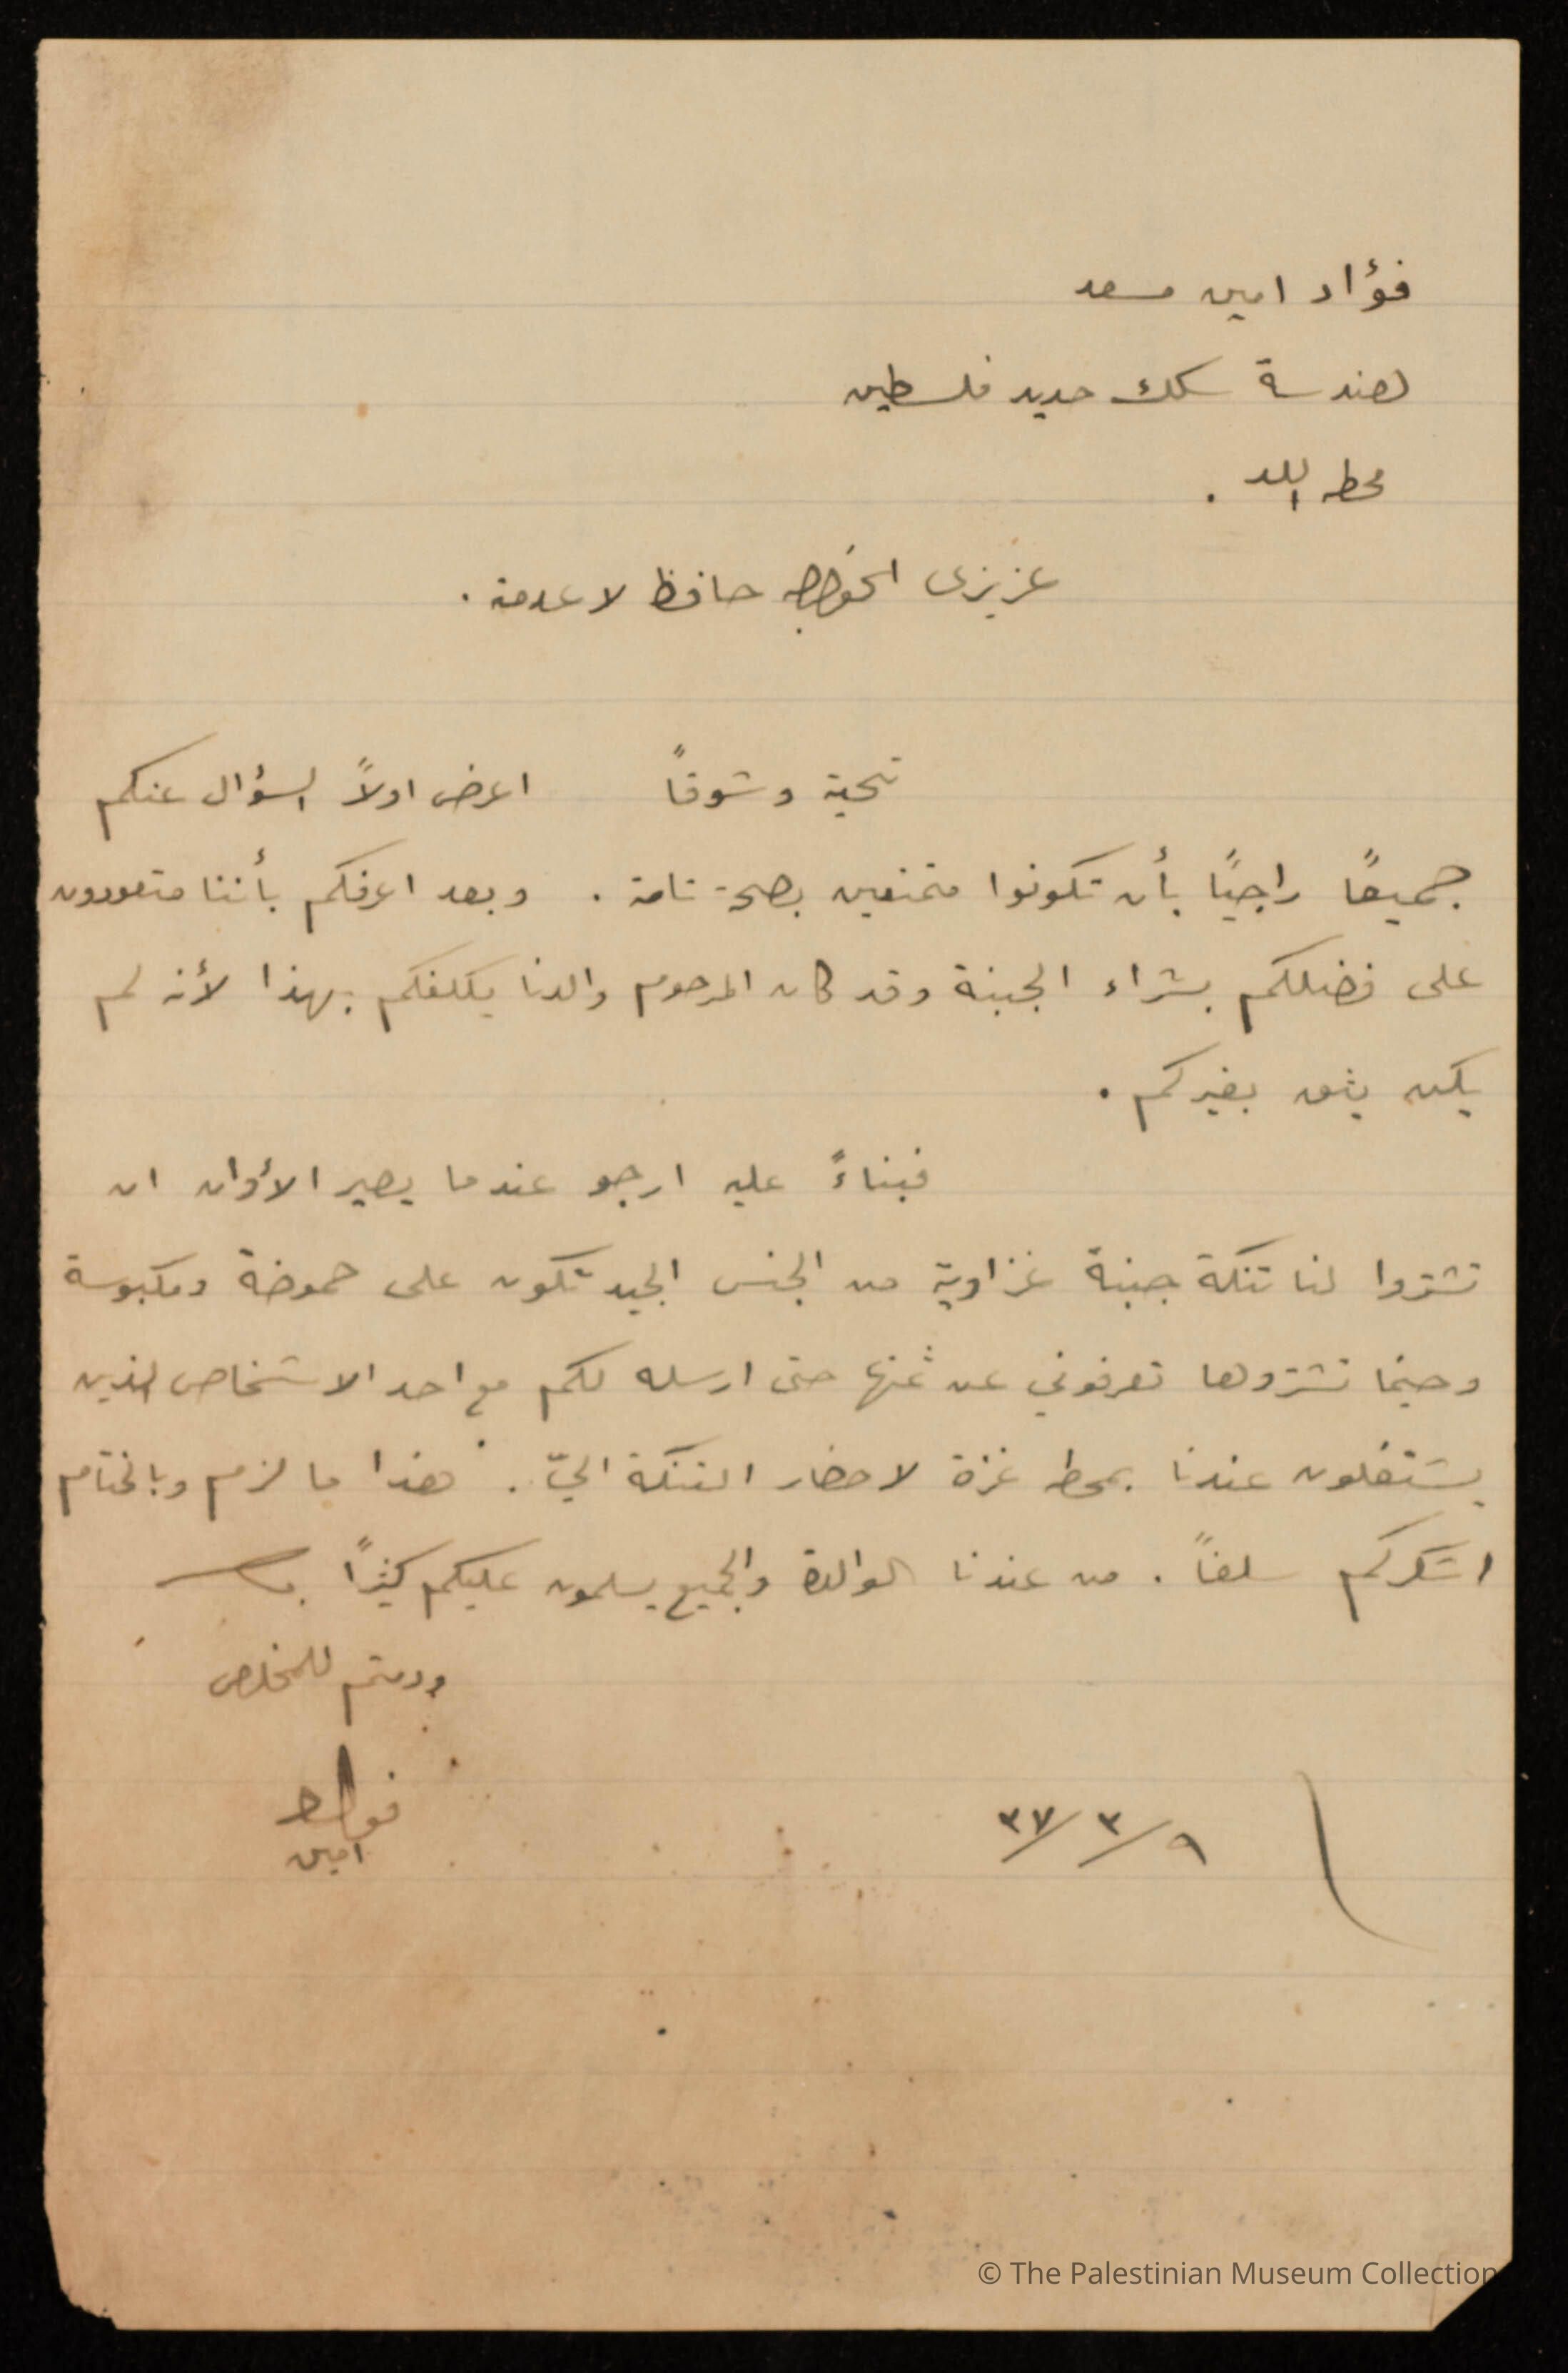 فؤاد امين مسعد
هندسة سكك حديد فلسطين
محطه اللد .
عزيزي الخواجه حافظ لا عدمته .
تحية وشوقاً اعرض اولاً السؤال عنكم
جميعاً راجيًا بأن تكونوا متمتعين بصحة تامة . وبعد اعرفكم بأننا متعودون
على فضلكم بشراء الجبنة وقد كان المرحوم والدنا يكلفكم بهذا لأنه لم
يكن يثق بغيركم .
فبناءً عليه ارجو عندما يصير الأوان ان
تشتروا لنا تنكة جبنة غزاوية من الجنس الجيد تكون على حموضة ومكبوسة
وحينما تشتروها تعرفوني عن ثمنها حتى ارسله لكم مع احد الاشخاص الذين
يشتغلون عندنا بمحطه غزة لاحضار التنكة اليّ . هذا ما لزم وبالختام
اشكركم سلفاً . من عندنا الوالدة والجميع يسلمون عليكم كثيرًا
ودمتم للمخلص
فؤاد
امين
٩/٣/٣٧
© The Palestinian Museum Collection